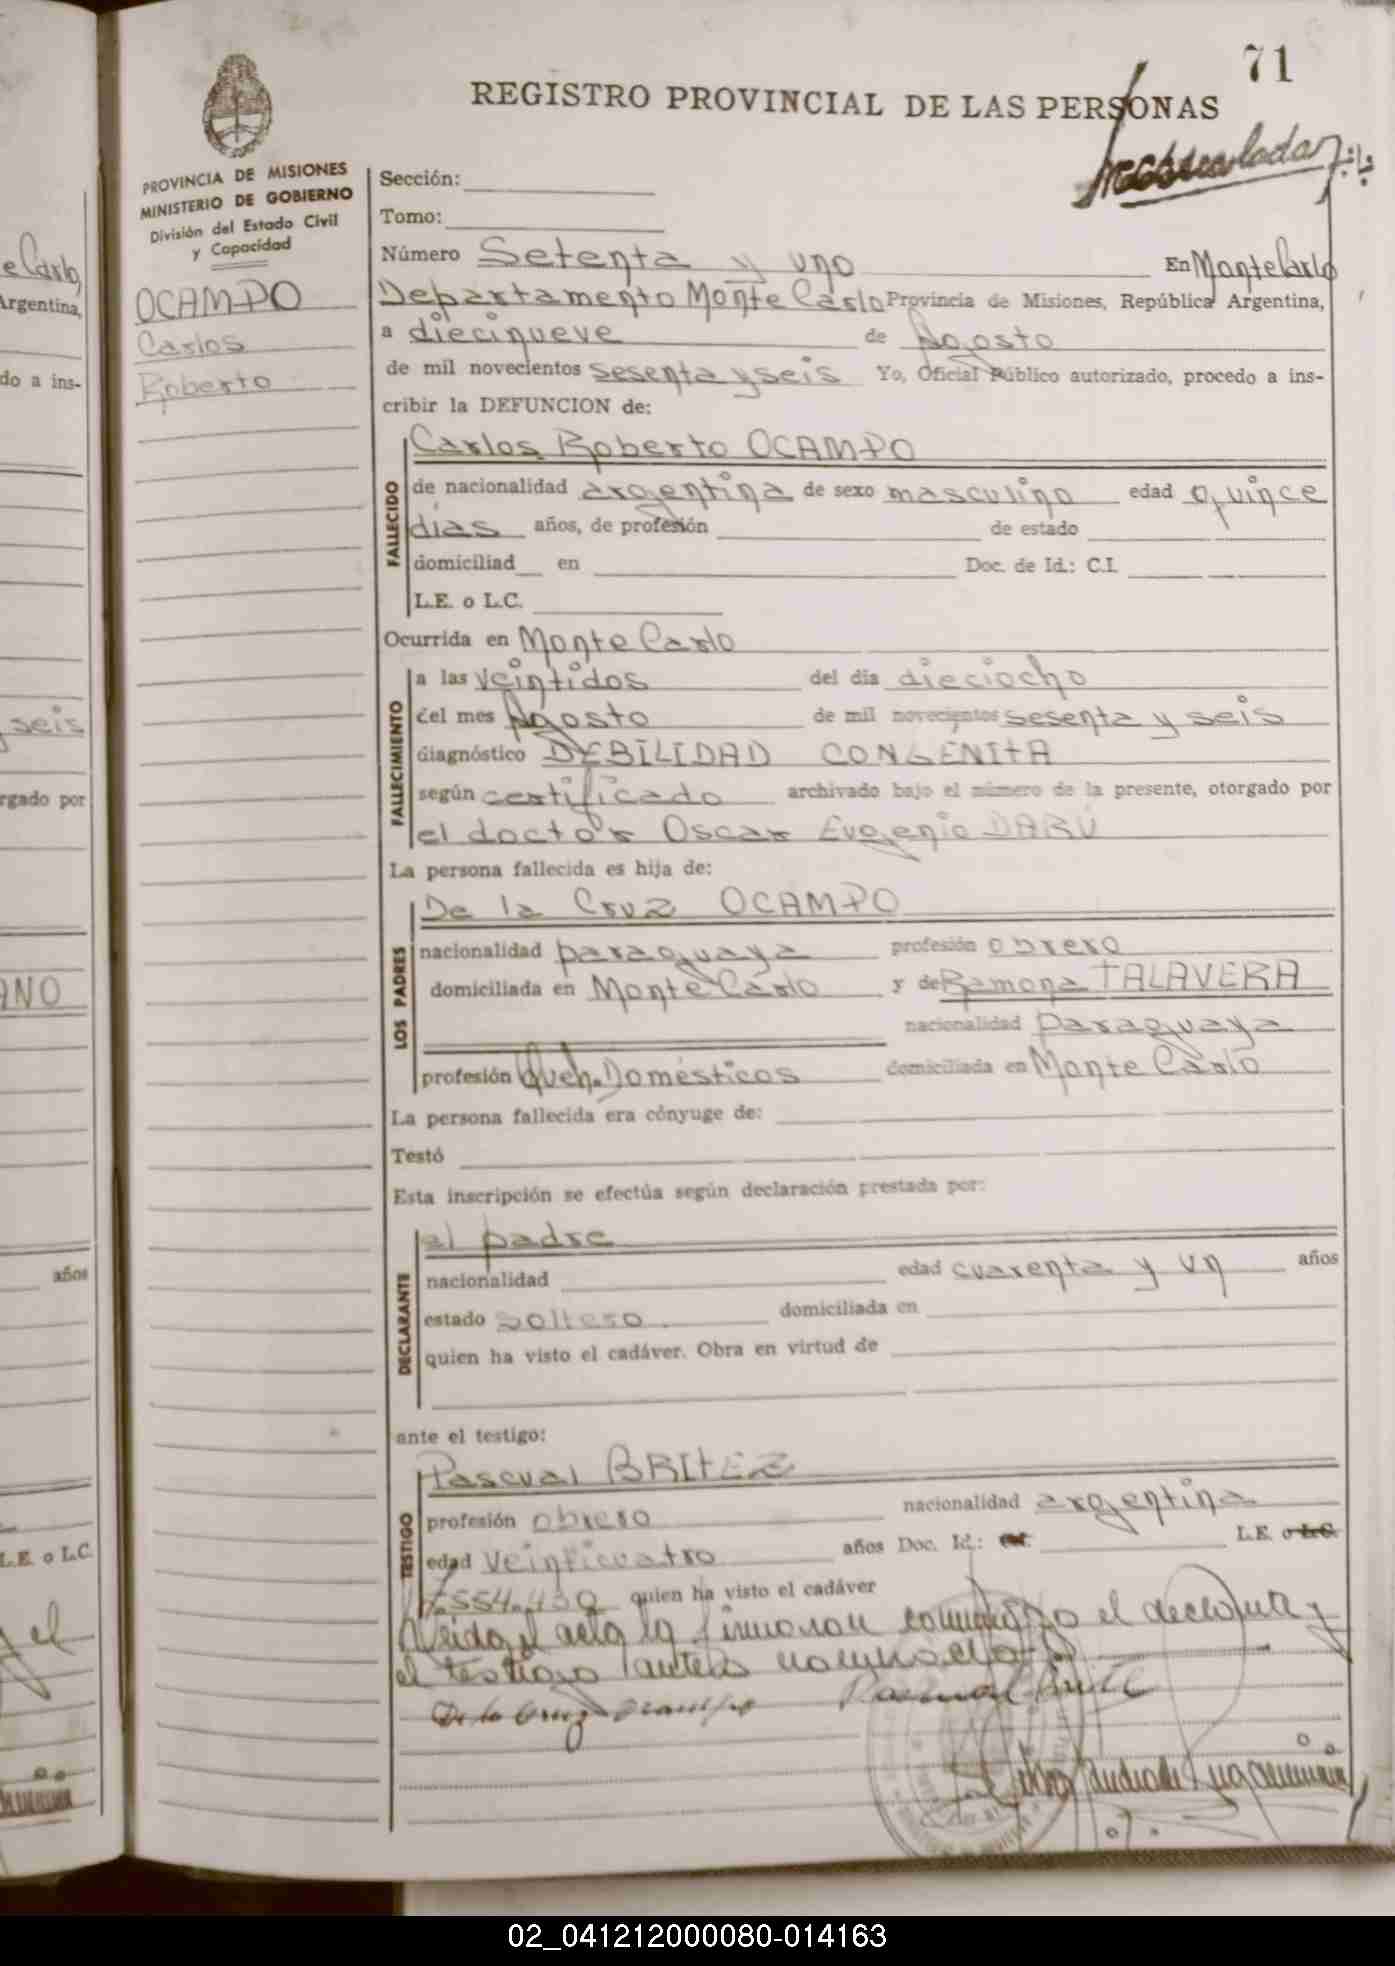 71
REGISTRO PROVINCIAL DE LAS PERSONAS
PROVINCIA DE MISIONES
MINISTERIO DE GOBIERNO
División del Estado Civil
y Capacidad
OCAMPO
Carlos
Roberto
Sección:
Tomo:
Número Setenta y uno En Monte Carlo
Departamento Monte Carlo Provincia de Misiones, República Argentina,
a diecinueve de Agosto
de mil novecientos sesenta y seis Yo, Oficial Público autorizado, procedo a ins-
cribir la DEFUNCION de:
FALLECIDO
Carlos Roberto OCAMPO
de nacionalidad argentina de sexo masculino edad quince
días años, de profesión de estado
domiciliad en Doc. de Id.: C.I.
L.E. o L.C.
Ocurrida en Monte Carlo
FALLECIMIENTO
a las veintidos del día dieciocho
del mes Agosto de mil novecientos sesenta y seis
diagnóstico DEBILIDAD CONGENITA
según certificado archivado bajo el número de la presente, otorgado por
el doctor Oscar Eugenio DARÚ
La persona fallecida es hija de:
LOS PADRES
De la Cruz OCAMPO
nacionalidad paraguaya profesión obrero
domiciliada en Monte Carlo y de Ramona TALAVERA
nacionalidad paraguaya
profesión Queh. Domésticos domiciliada en Monte Carlo
La persona fallecida era cónyuge de:
Testó
Esta inscripción se efectúa según declaración prestada por:
DECLARANTE
el padre
nacionalidad edad cuarenta y un años
estado soltero. domiciliada en
quien ha visto el cadáver. Obra en virtud de
ante el testigo:
TESTIGO
Pascual BRITEZ
profesión obrero nacionalidad argentina
edad veinticuatro años Doc. Id.: L.E. o L.C.
quien ha visto el cadáver
Leida el acta la firmaron conmigo el declarante y
el testigo
De la Cruz Ocampo Pascual Britez
e Carlo,
Argentina,
do a ins-
y seis
rgado por
ANO
años
L.E. o L.C.
y el
02_041212000080-014163